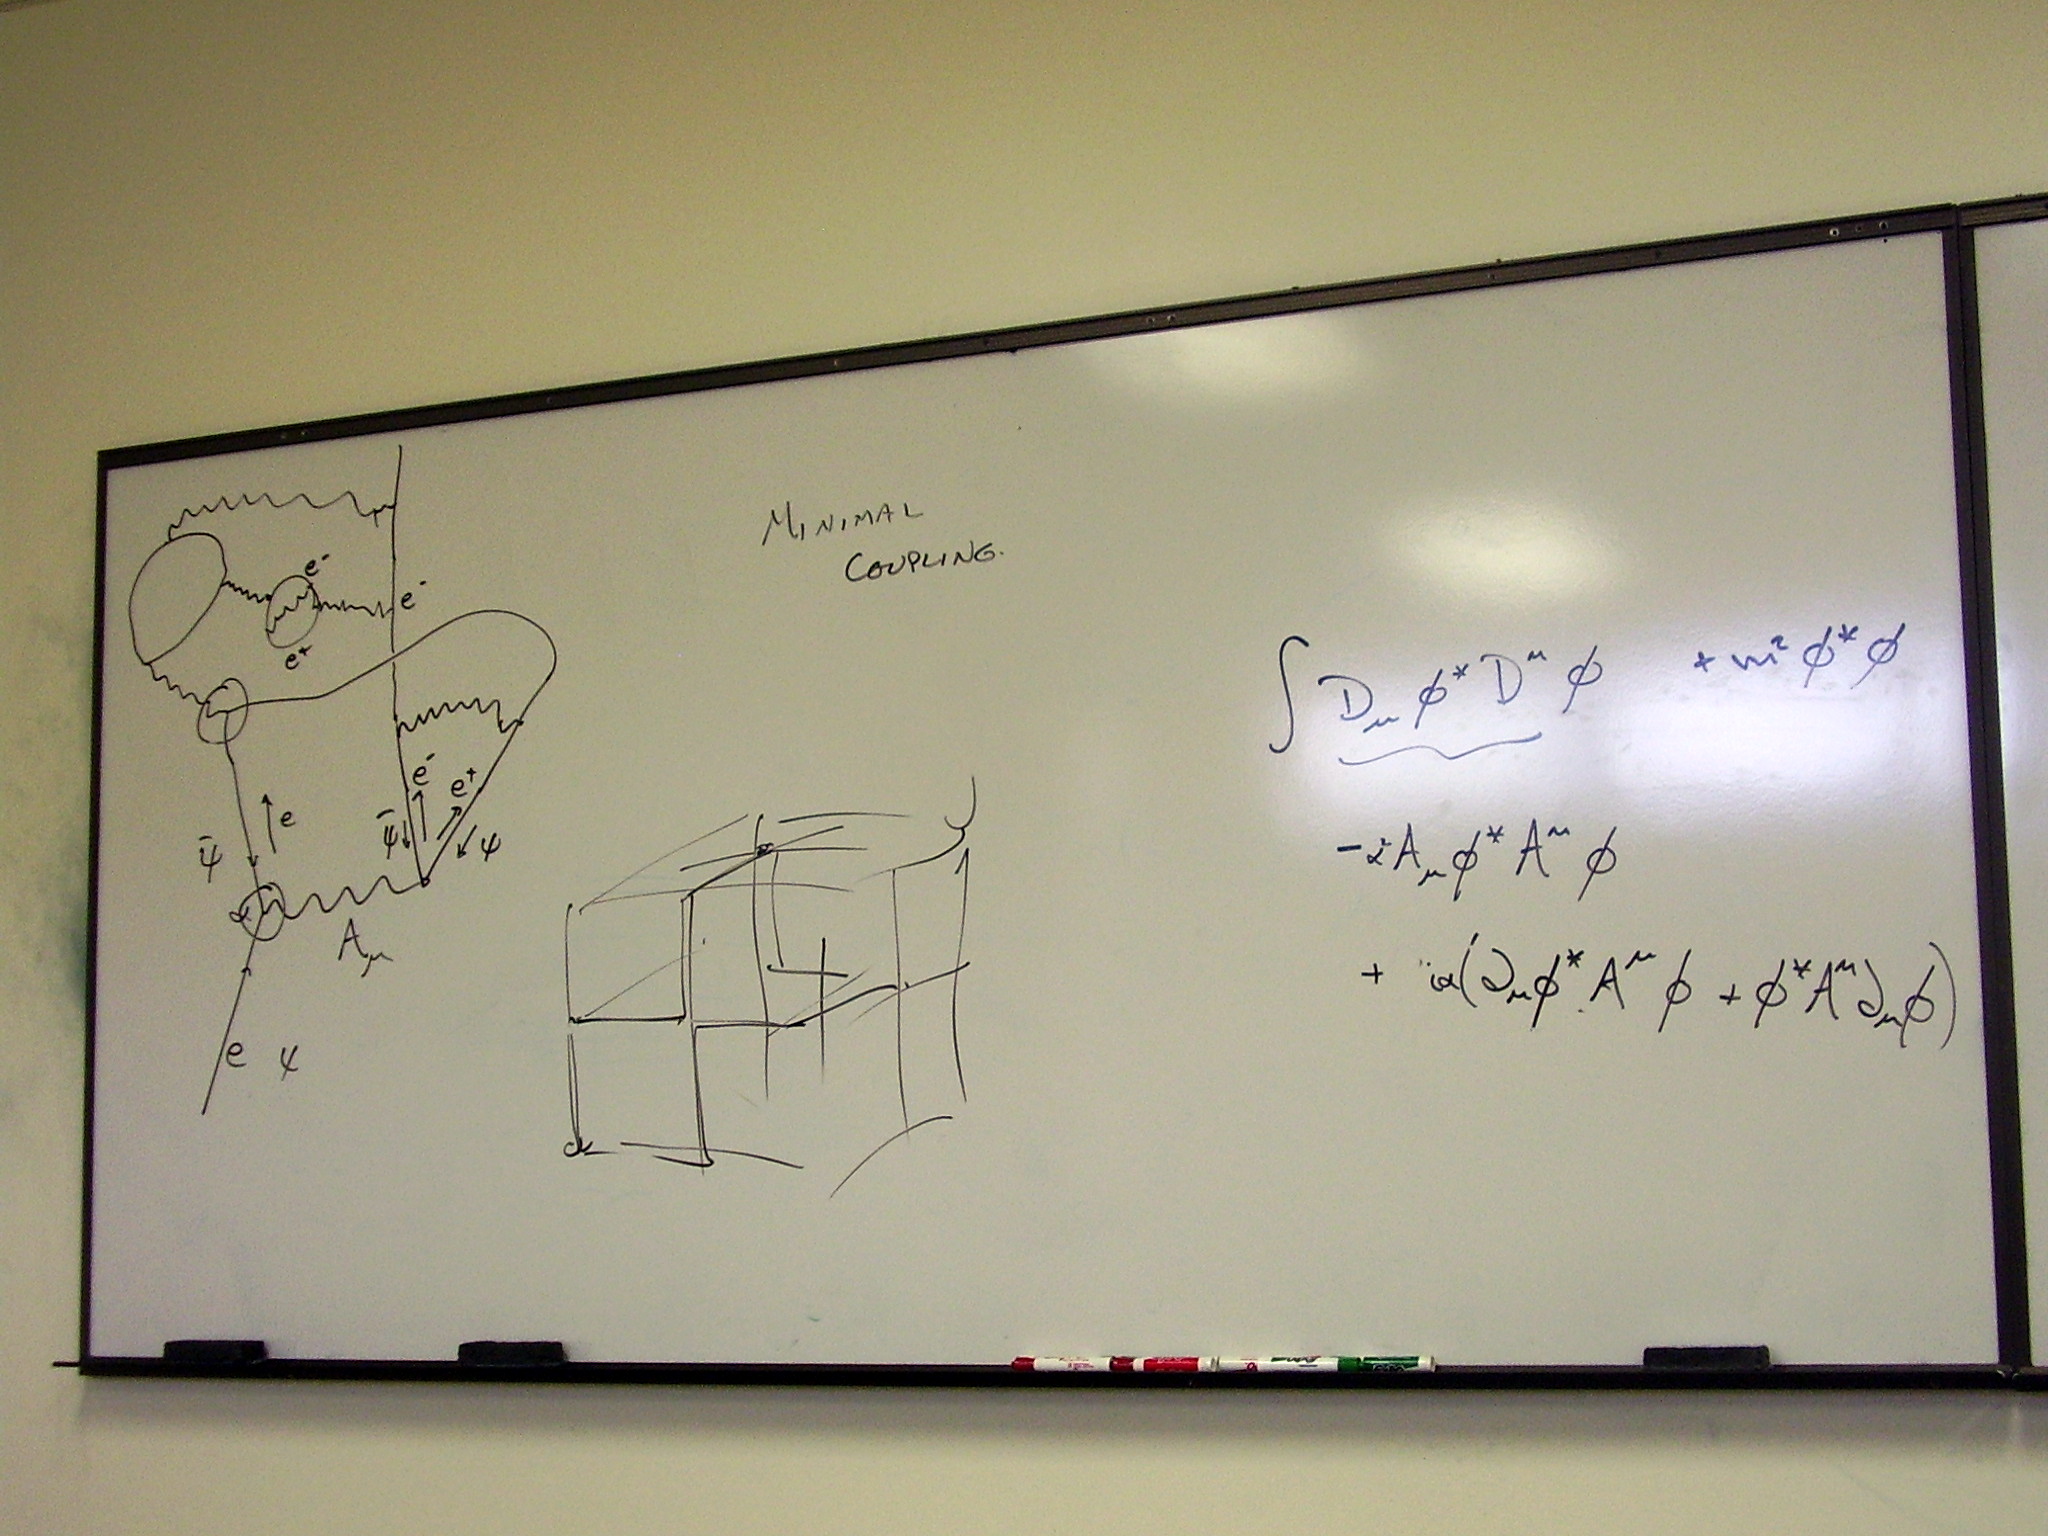 MINIMAL
COUPLING.
e⁻
e⁻
e⁺
e⁻
e⁺
e
ψ̄
ψ̄
ψ
α
A_μ
e ψ
∫ D_μ φ* D^μ φ + m² φ* φ
-α² A_μ φ* A^μ φ
+ iα(∂_μ φ* A^μ φ + φ* A^μ ∂_μ φ)